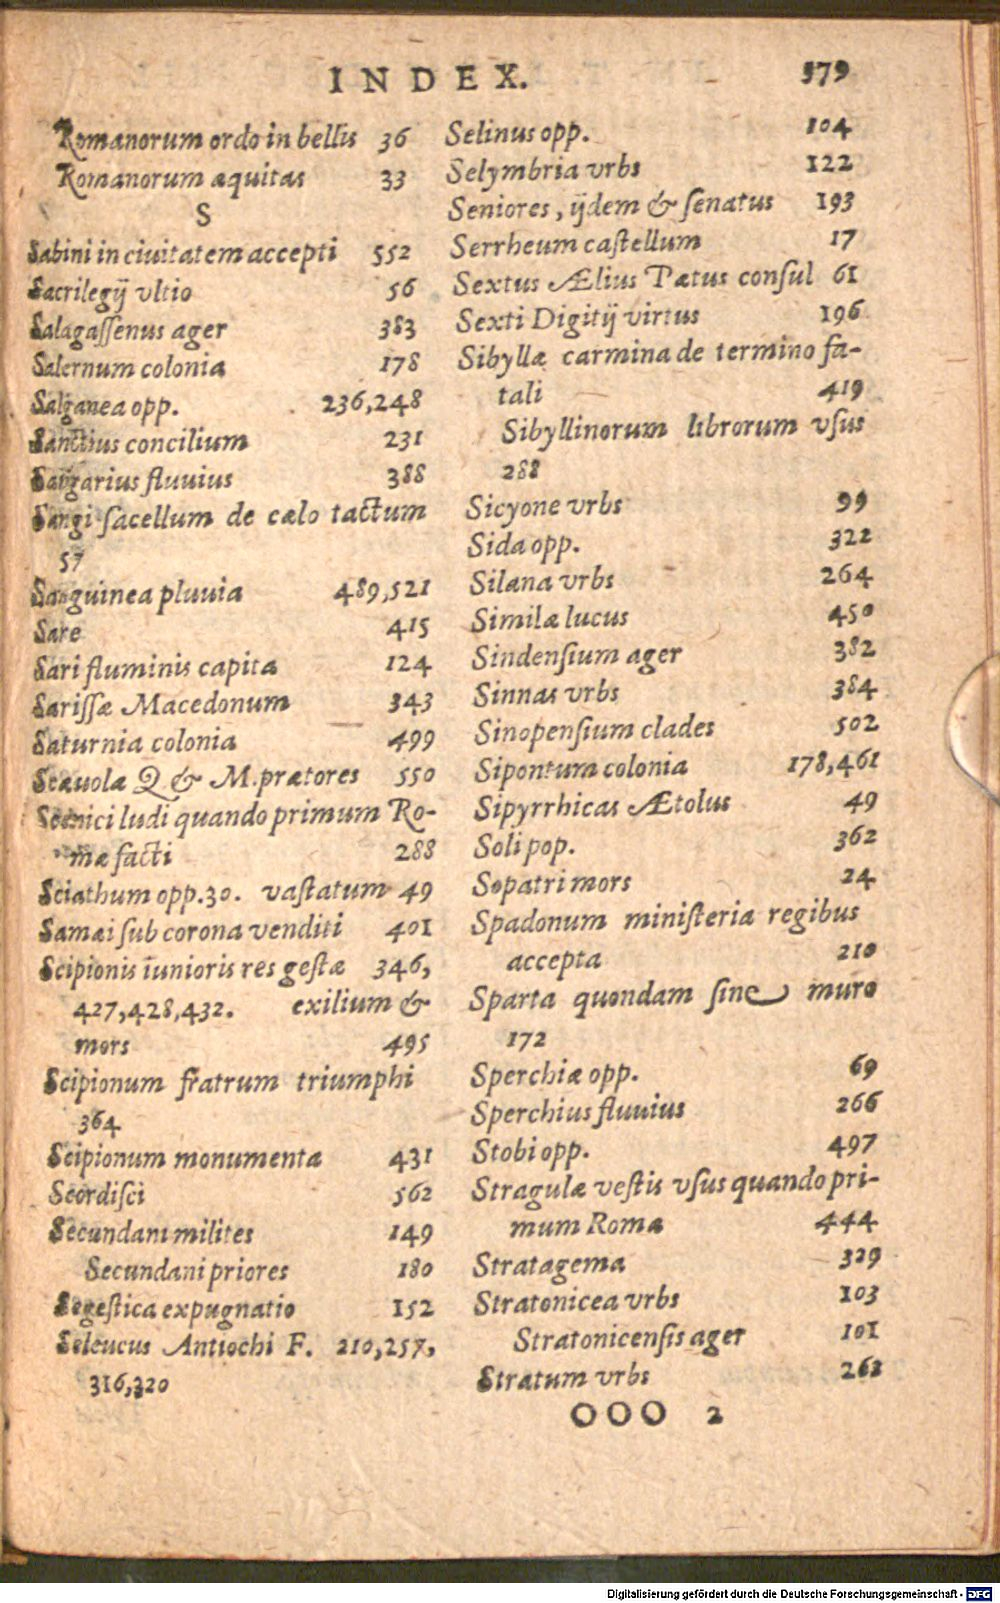 INDEX. 579
Romanorum ordo in bellis 36
Romanorum æquitas 33
S
Sabini in ciuitatem accepti 552
Sacrilegij vltio 56
Salagaſſenus ager 383
Salernum colonia 178
Salganea opp. 236,248
Sanctius concilium 231
Sangarius fluuius 388
Sangi ſacellum de cælo tactum
57
Sanguinea pluuia 489,521
Sare 415
Sari fluminis capita 124
Sariſſæ Macedonum 343
Saturnia colonia 499
Scæuola Q & M. prætores 550
Scenici ludi quando primum Ro-
mæ facti 288
Sciathum opp. 30. vaſtatum 49
Samæi ſub corona venditi 401
Scipionis iunioris res geſtæ 346,
427,428,432. exilium &
mors 495
Scipionum fratrum triumphi
364
Scipionum monumenta 431
Scordiſci 562
Secundani milites 149
Secundani priores 180
Segeſtica expugnatio 152
Seleucus Antiochi F. 210,257,
316,320
Selinus opp. 104
Selymbria vrbs 122
Seniores, ijdem & ſenatus 193
Serrheum caſtellum 17
Sextus Ælius Pætus conſul 61
Sexti Digitij virtus 196
Sibyllæ carmina de termino fa-
tali 419
Sibyllinorum librorum vſus
288
Sicyone vrbs 99
Sida opp. 322
Silana vrbs 264
Similæ lucus 450
Sindenſium ager 382
Sinnas vrbs 384
Sinopenſium clades 502
Sipontum colonia 178,461
Sipyrrhicas Ætolus 49
Soli pop. 362
Sopatri mors 24
Spadonum miniſteria regibus
accepta 210
Sparta quondam ſine muro
172
Sperchiæ opp. 69
Sperchius fluuius 266
Stobi opp. 497
Stragulæ veſtis vſus quando pri-
mum Romæ 444
Stratagema 329
Stratonicea vrbs 103
Stratonicenſis ager 101
Stratum vrbs 263
OOO 2
Digitalisierung gefördert durch die Deutsche Forschungsgemeinschaft - DFG